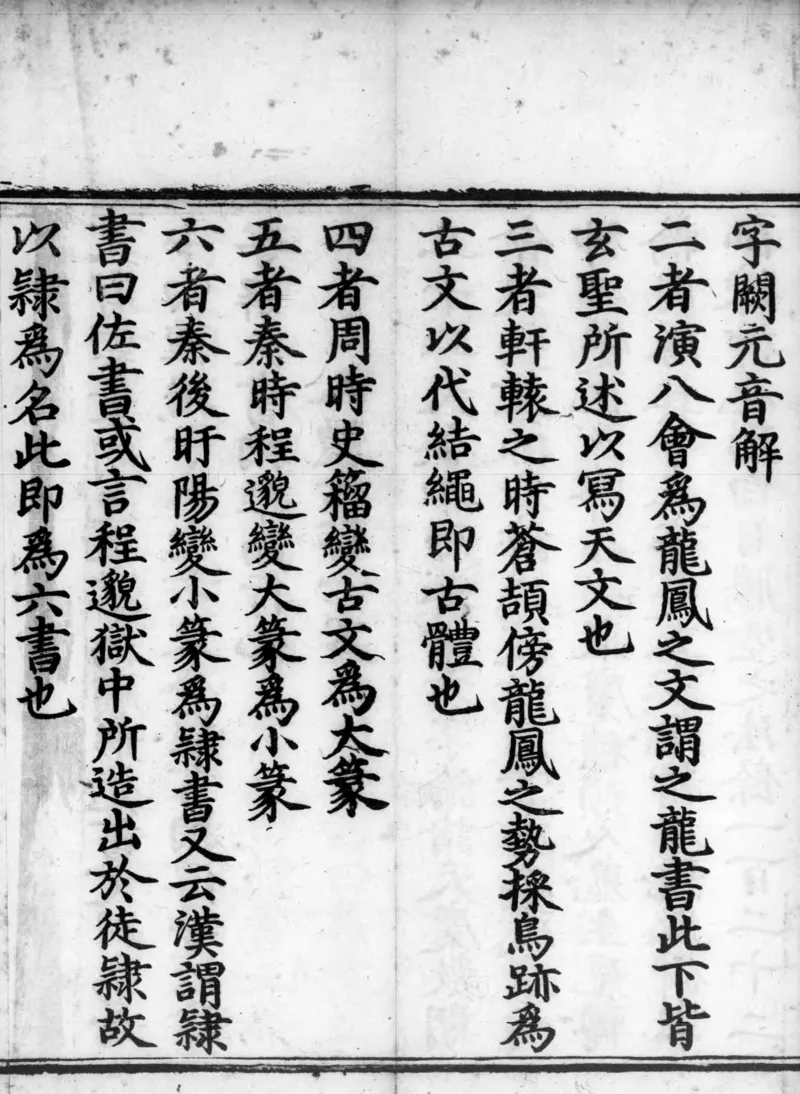 字闕元音解
二者演八會爲龍鳳之文謂之龍書此下皆
玄聖所述以冩天文也
三者軒轅之時蒼頡傍龍鳳之勢採鳥跡爲
古文以代結繩即古體也
四者周時史籀變古文爲大篆
五者秦時程邈變大篆爲小篆
六者秦後旴陽變小篆爲隸書又云漢謂隸
書曰佐書或言程邈獄中所造出於徒隸故
以隸爲名此即爲六書也